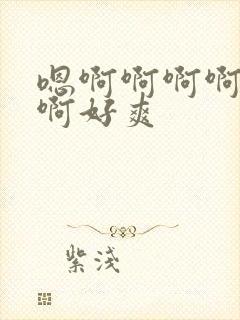 嗯啊啊啊啊
啊好爽
紫淺